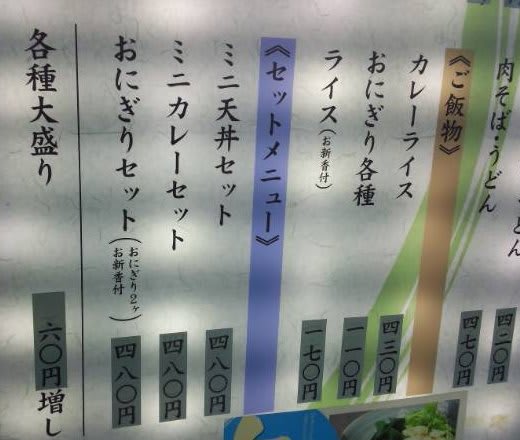 どん 四二〇円
肉そば・うどん 四七〇円
《ご飯物》
カレーライス 四三〇円
おにぎり各種 一一〇円
ライス(お新香付) 一七〇円
《セットメニュー》
ミニ天丼セット 四八〇円
ミニカレーセット 四八〇円
おにぎりセット(おにぎり2ヶ お新香付) 四八〇円
各種大盛り 六〇円増し